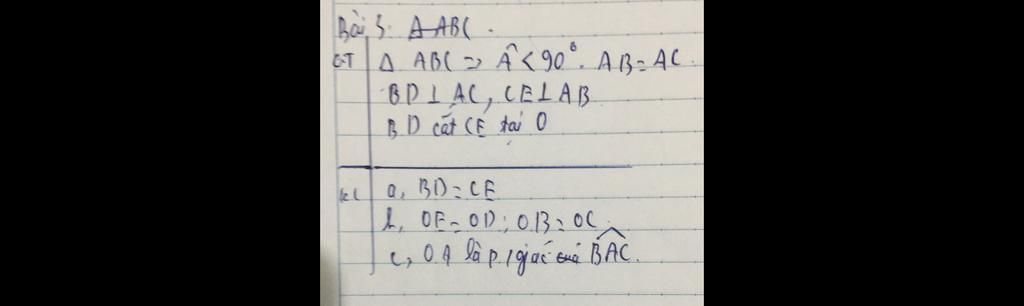 Bài 3. Δ ABC.
GT Δ ABC => Â < 90°. AB = AC.
BD ⊥ AC, CE ⊥ AB
BD cắt CE tại O
KL a, BD = CE
b, OE = OD; OB = OC.
c, OA là p/giác của BAC.